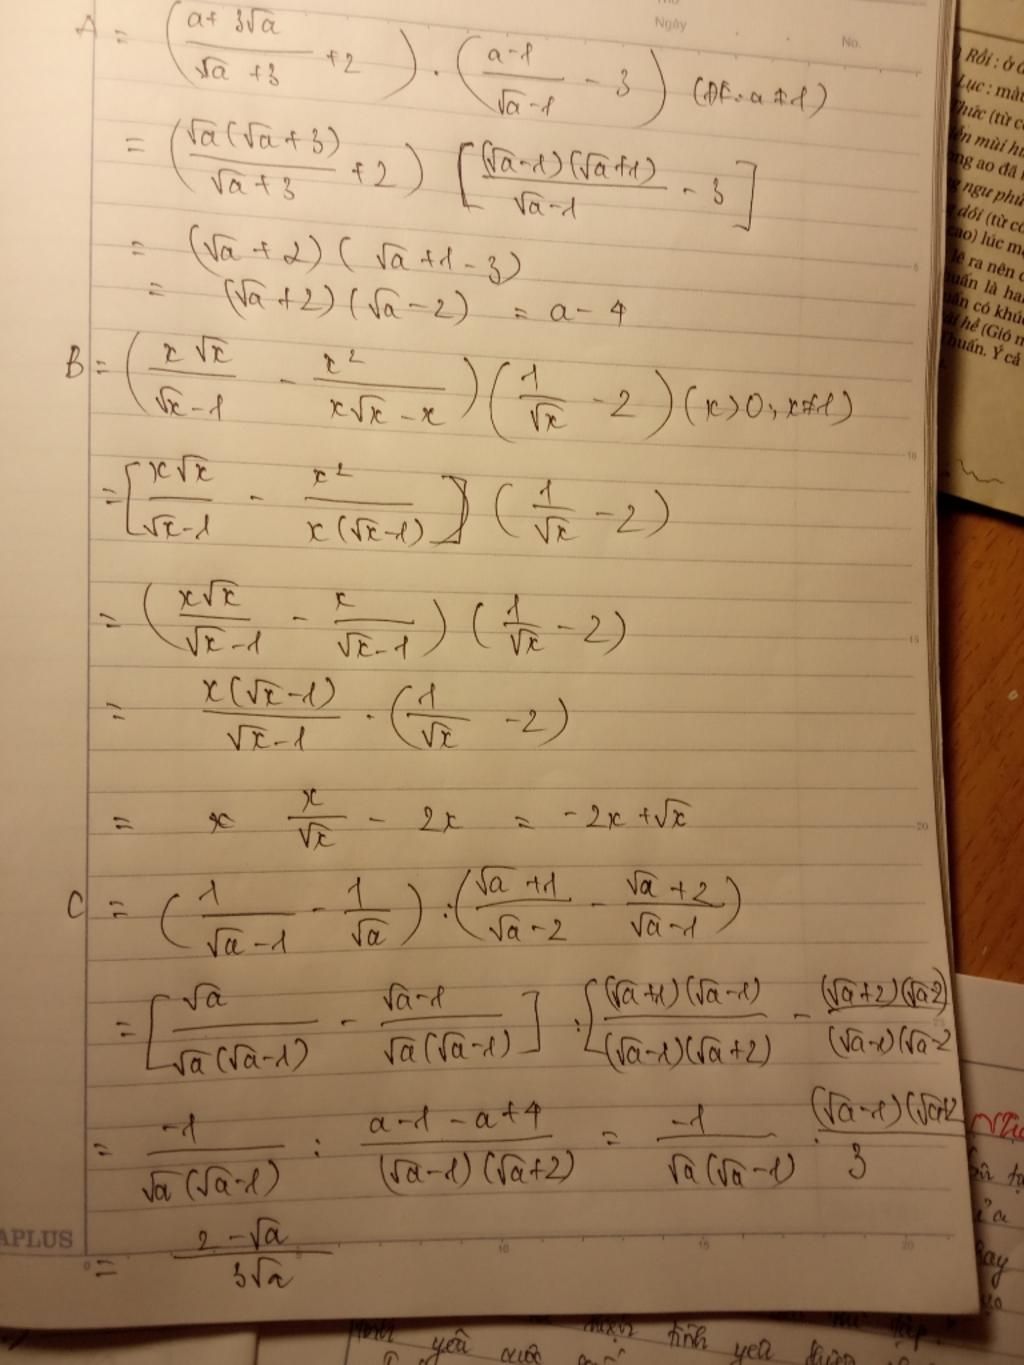 Ngày
No.
A = ( (a + 3√a)/(√a + 3) + 2 ) . ( (a-1)/(√a-1) - 3 ) (ĐK: a ≠ 1)
= ( √a(√a+3)/(√a+3) + 2 ) [ (√a-1)(√a+1)/(√a-1) - 3 ]
= (√a + 2) ( √a + 1 - 3)
= (√a + 2) (√a - 2) = a - 4
B = ( x√x/(√x-1) - x²/(x√x - x) ) ( 1/√x - 2 ) (x>0, x≠1)
= [ x√x/(√x-1) - x²/(x(√x-1)) ] ( 1/√x - 2 )
= ( x√x/(√x-1) - x/(√x-1) ) ( 1/√x - 2 )
= x(√x-1)/(√x-1) . ( 1/√x - 2 )
= x/√x - 2x = -2x + √x
C = ( 1/(√a-1) - 1/√a ) : ( (√a+1)/(√a-2) - (√a+2)/(√a-1) )
= [ √a/(√a(√a-1)) - (√a-1)/(√a(√a-1)) ] : [ (√a+1)(√a-1)/((√a-1)(√a+2)) - (√a+2)(√a-2)/((√a-1)(√a-2
= -1/(√a(√a-1)) : (a-1-a+4)/((√a-1)(√a+2)) = -1/(√a(√a-1)) . (√a-1)(√a+2/3
= (2-√a)/(3√a)
APLUS
0 5 10 15 20
Rồi : ở đ
Lục : màu
Thức (từ c
mùi hư
ng ao đã
ngư phủ
dối (từ cổ
cao) lúc m
lẽ ra nên
uấn là ha
uấn có khúc
hề (Gió m
huấn. Ý cả
tình yêu
yêu